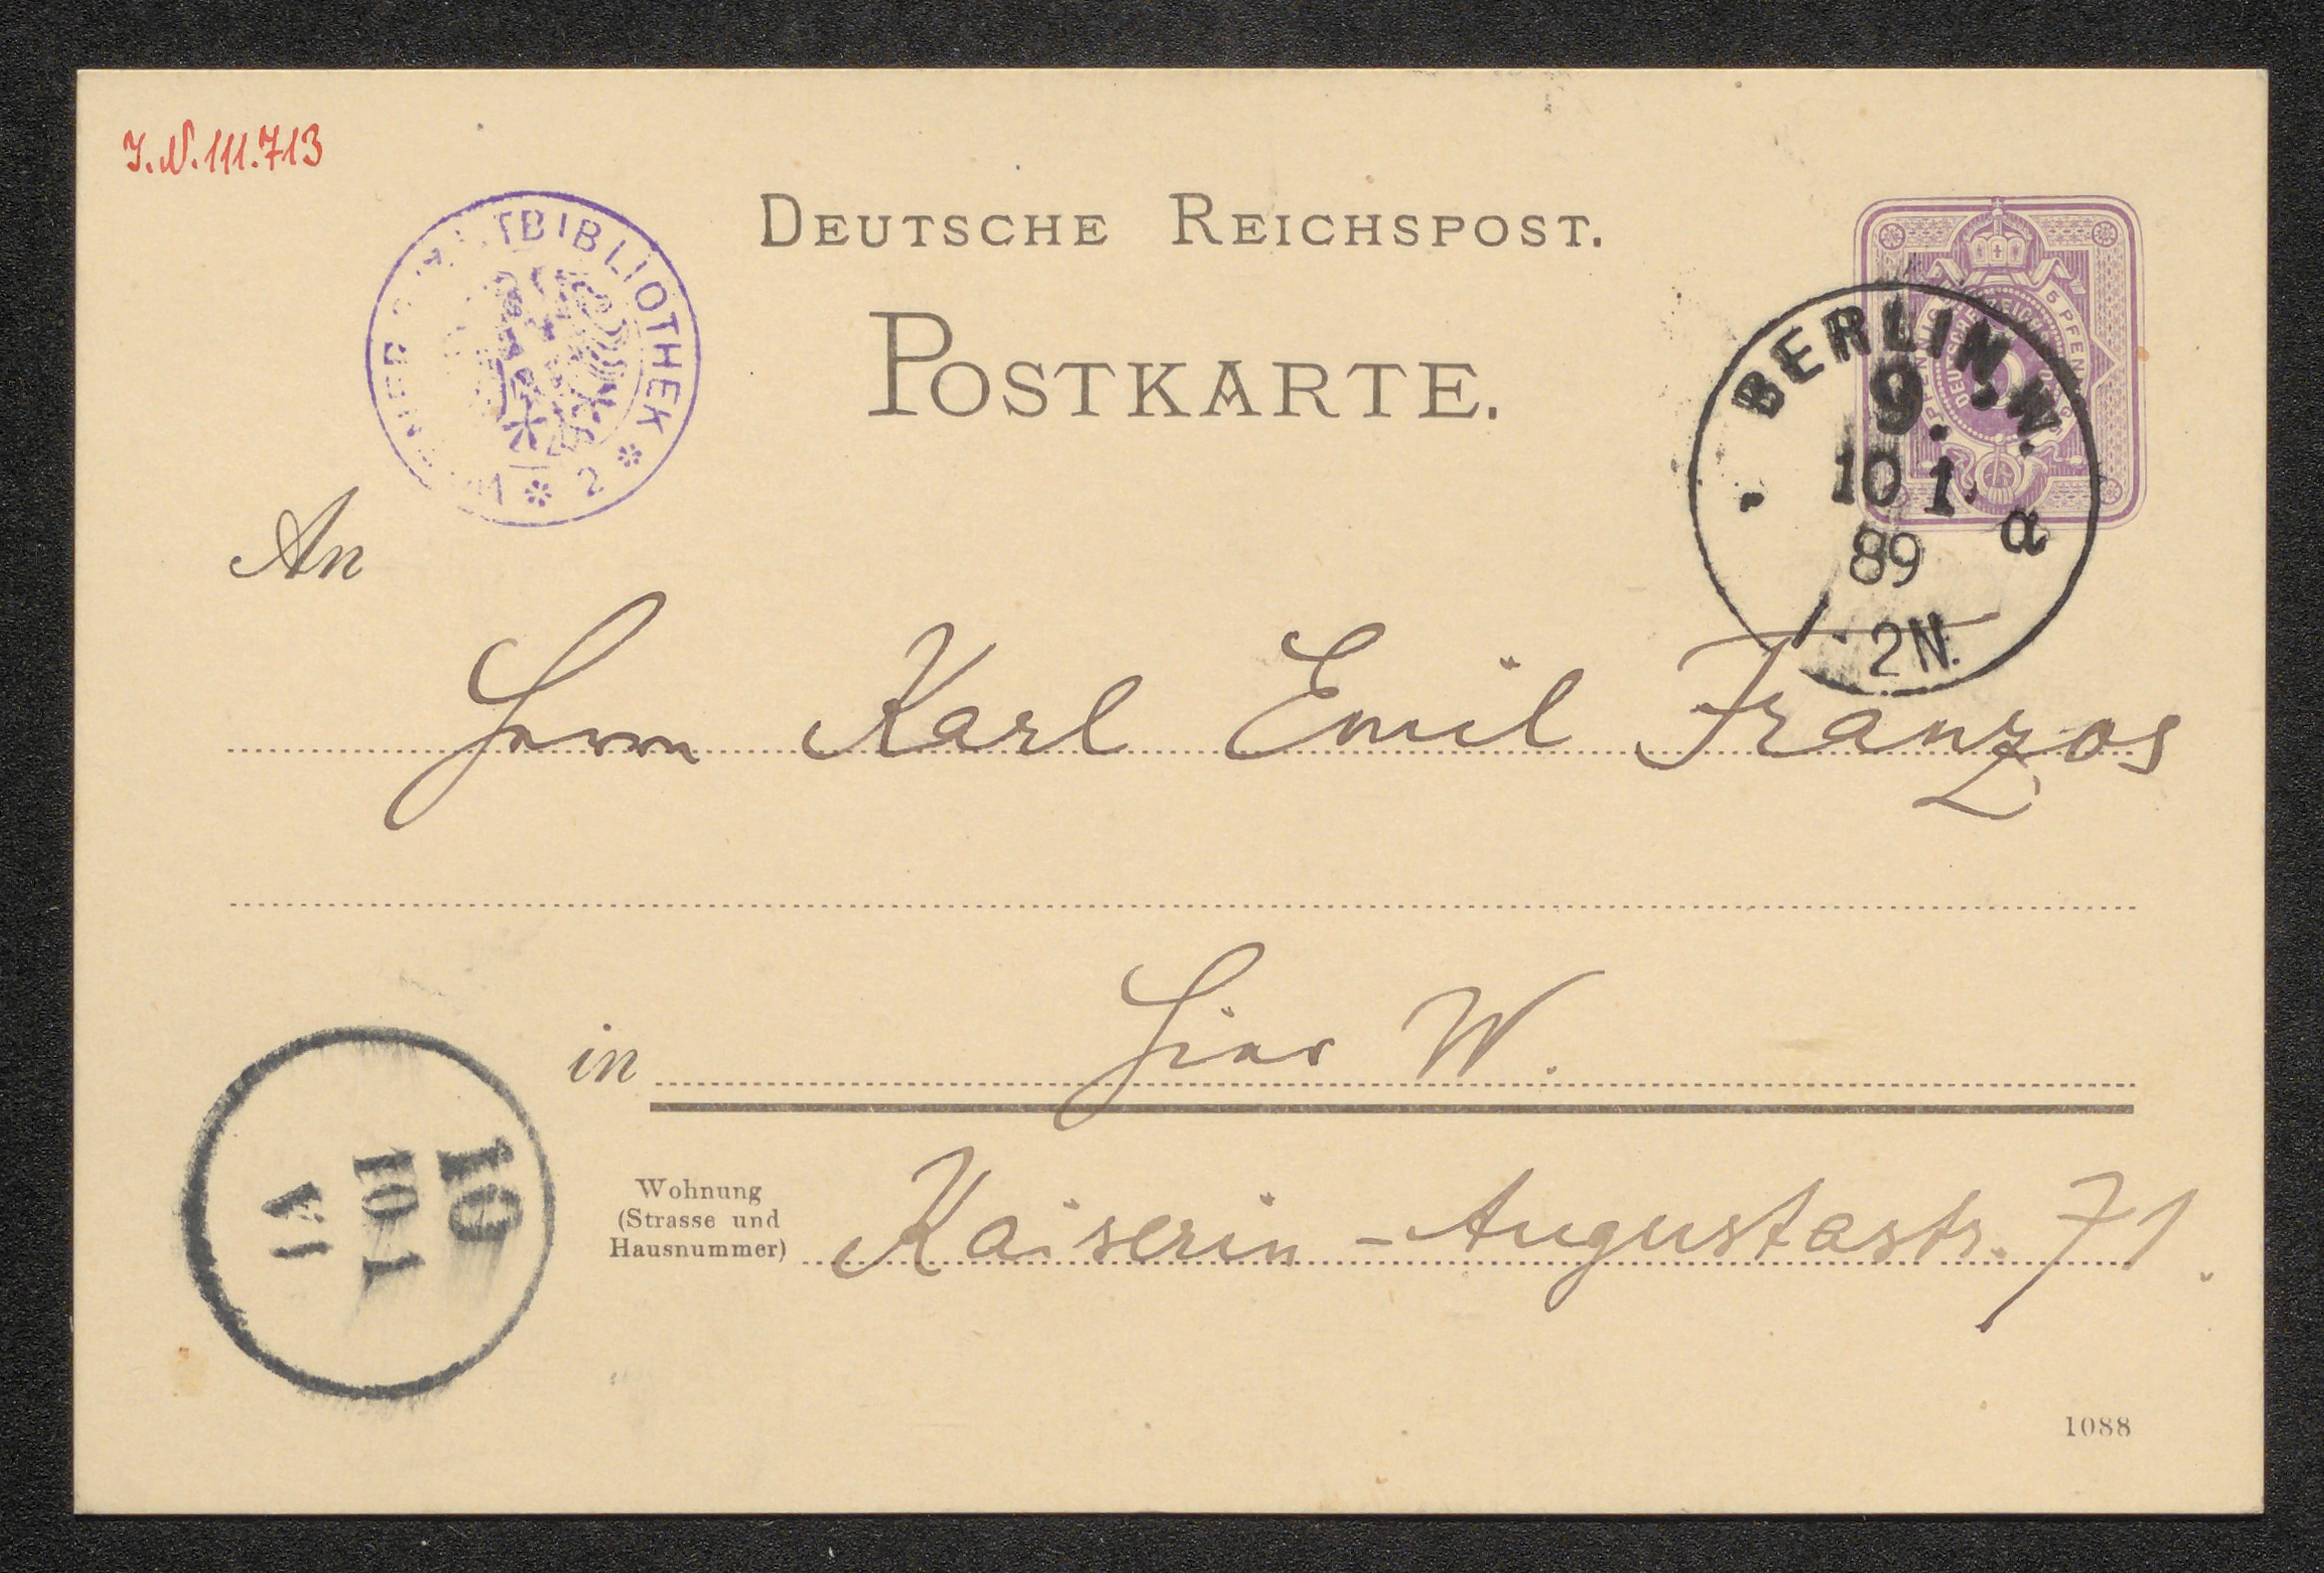 J.N.111.713
BIBLIOTHEK
2
DEUTSCHE REICHSPOST.
POSTKARTE.
5 PFENNIG
BERLIN, W.
9.
10 1
89
2N.
a
An
Herrn Karl Emil Franzos
in Hier W.
Wohnung
(Strasse und
Hausnummer)
Kaiserin-Augustastr. 71.
10
10 1
1088